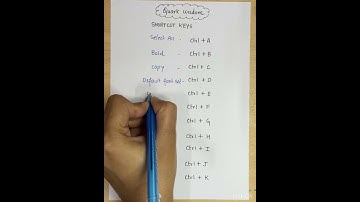 Quark wisdom
SHORTCUT KEYS
Select All - Ctrl + A
Bold - Ctrl + B
Copy - Ctrl + C
Default font - Ctrl + D
Ctrl + E
Ctrl + F
Ctrl + G
Ctrl + H
Ctrl + I
Ctrl + J
Ctrl + K